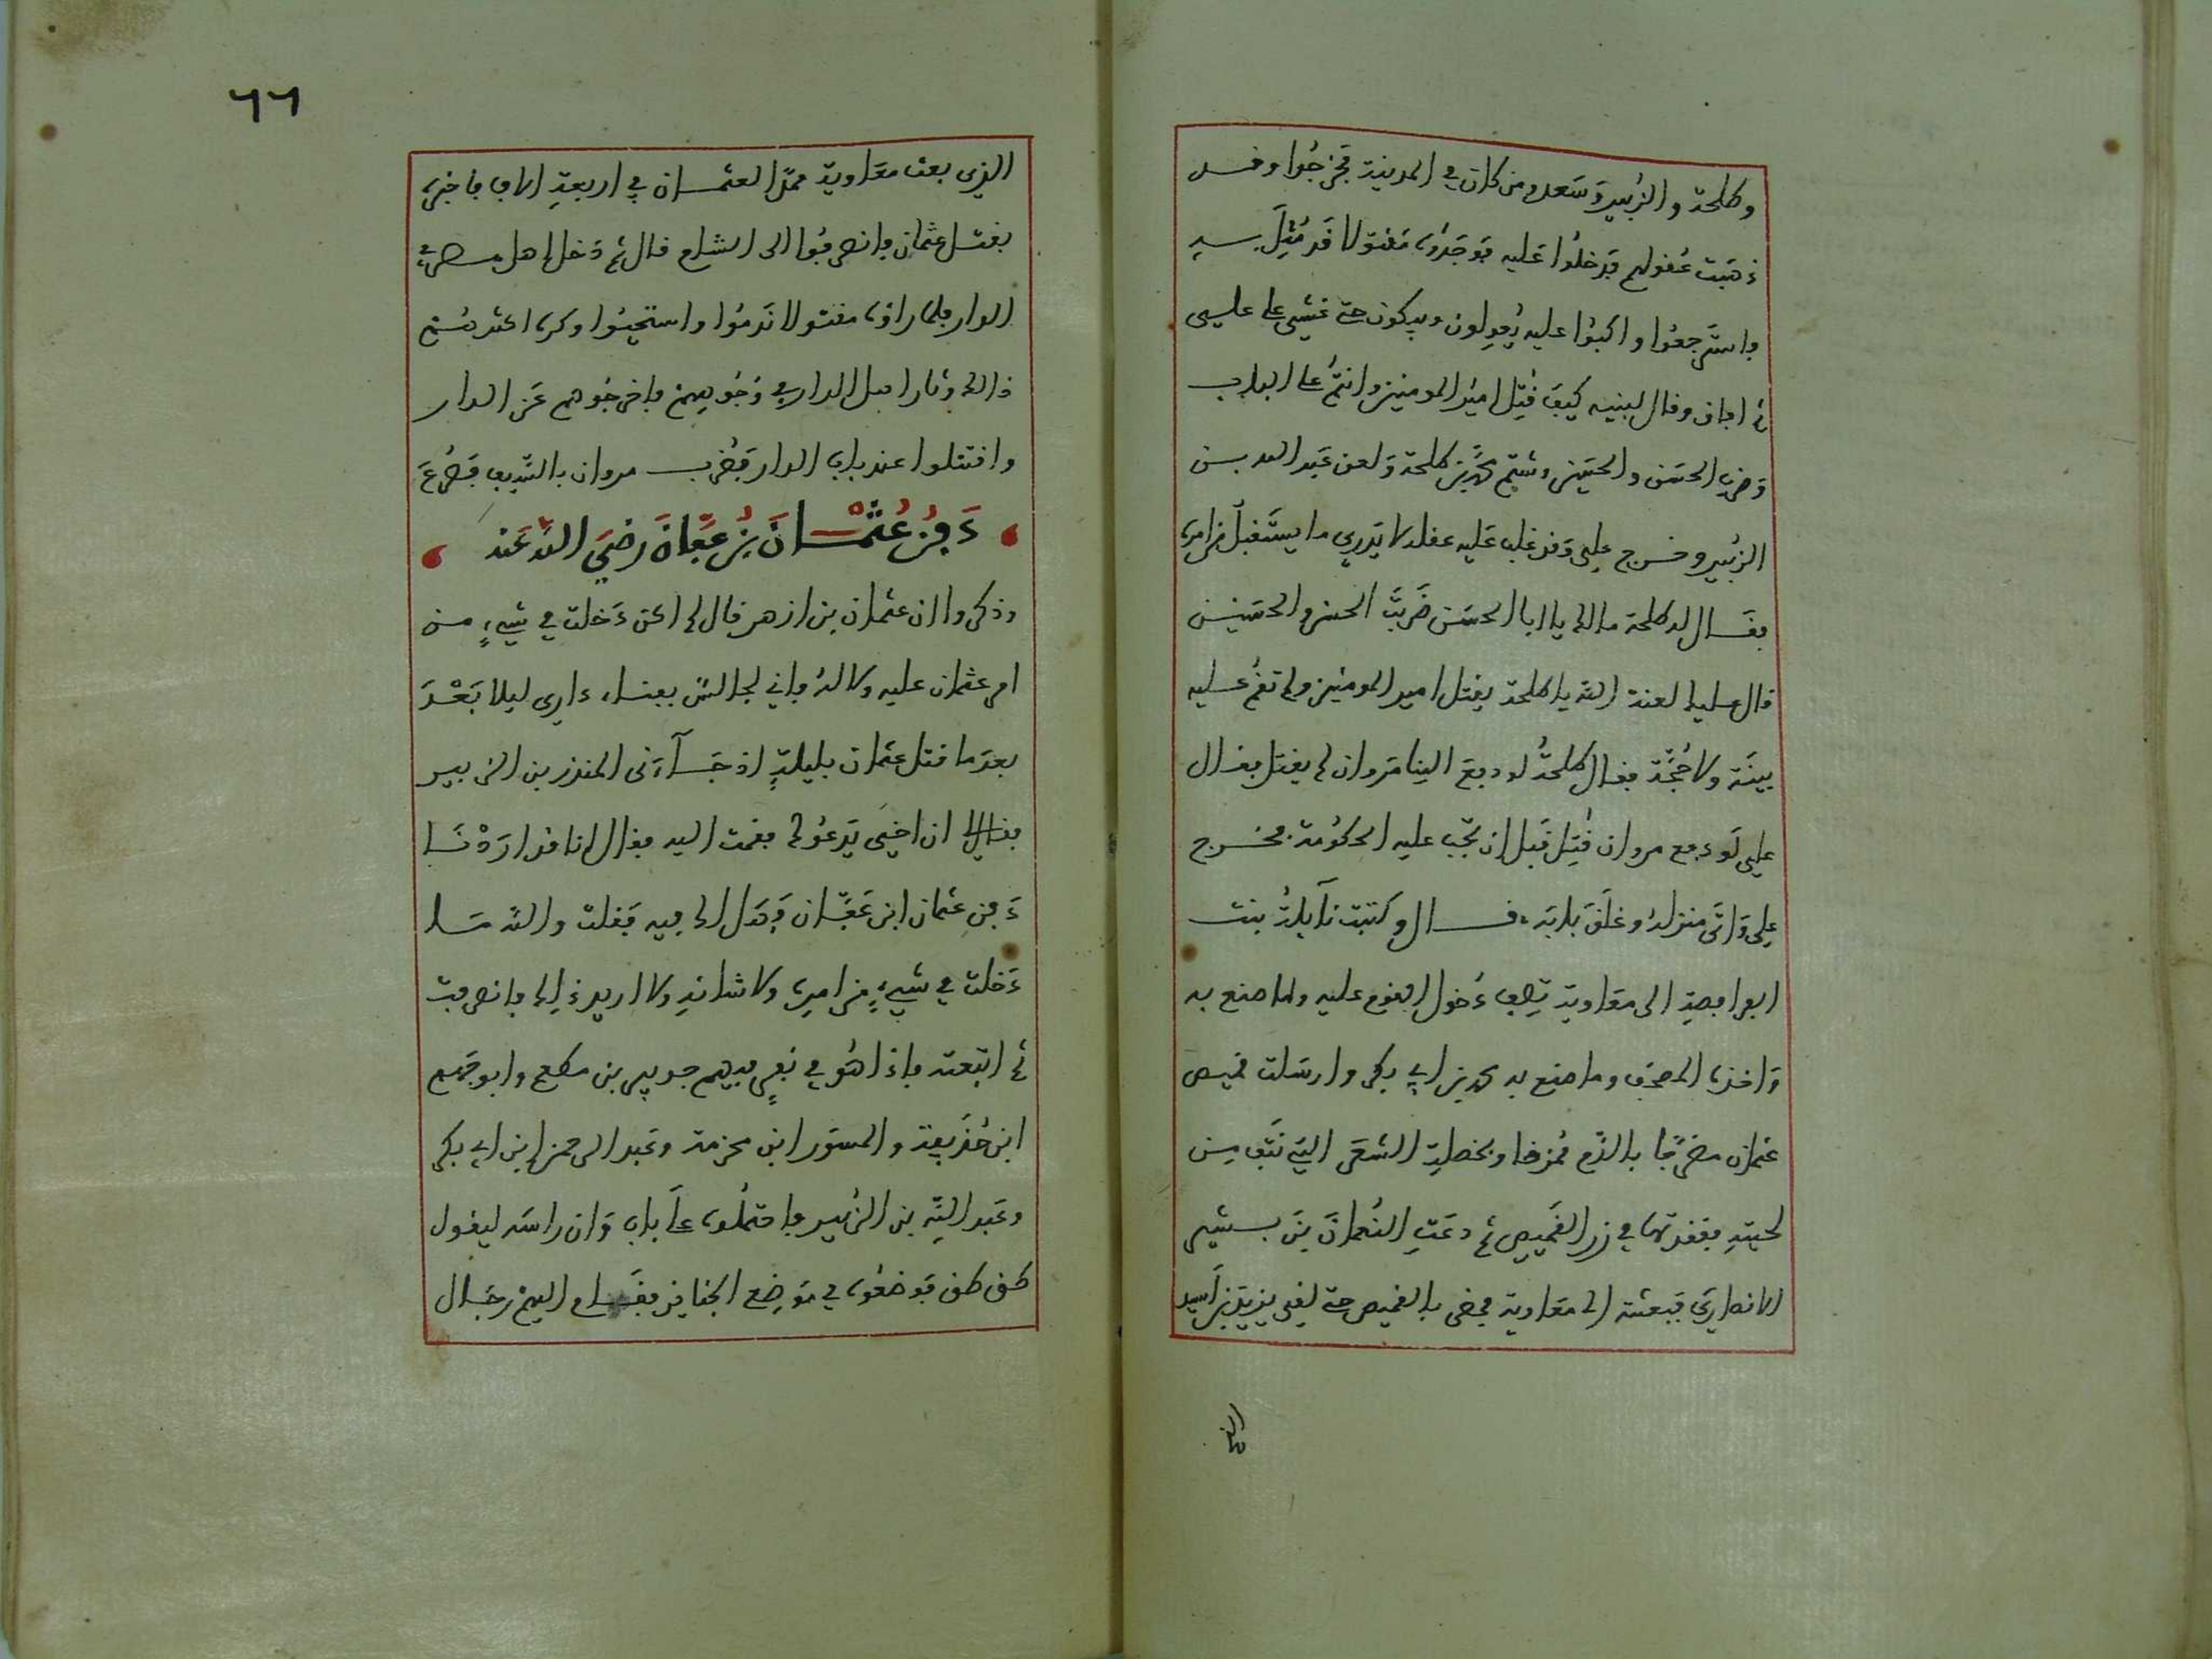 وطلحة والزُبير وَسَعد ومن كان في المدينة فخرجُوا وقد
ذهَبَت عُقولهم فدخلُوا عَليه فوجَدُوه مَقتولا قَد مُثِلَ به
فاسترجعُوا واكبوُا عليه يُعولون ويبكون حتى غشي على علي
ثم افاق وقال لبنيه كيفَ قُتِل اميرُ المومنين وانتمُ على الباب
وَضرب الحسَن والحسَين وشتم محمّد بن طلحة وَلعن عَبد الله بن
الزبُير وخرج علي وَقد غلب عَليه عقله لا يَدري ما يستَقبلُ من امره
فقال له طلحة مالك يا ابا الحسَن ضَربتَ الحسن والحسَين
قال عليك لعنة الله يا طلحة يقتل امير المومنين ولم تقُم عليه
بينَة ولا حُجَّة فقال طلحةُ لو دفع الينا مَروان لم يقتل فقال
علي لَو دفع مروان قُتِل قَبل ان تجب عليه الحكومة فخرج
علي وَاتَى منزلهُ وغلَقَ بابَه قال وكتبت نآيلةُ بنت
الفرافصةِ الى معَاوية تصِف دُخول القوم عليه وما صنع به
وَاخذه المصحَف وما صنع به محمد بن ابي بكر وارسَلت قميص
عثمان مضرجًا بالدَّم مُمزقا وبخصلةِ الشعَر التِي نتف من
لحيتهِ فعَقدتها في زر القَميص ثم دعَتِ النُعمانَ بنَ بشير
الانصاريَ فبعثته الى معَاوية فمضى بالقميص حتى لقي يزيد بن اسيد
الذي
٦٦
الذي بعث معَاوية ممدًا لعثمان في اربعةِ الاف فاخبره
بقتل عثمان فانصرفُوا الى الشام قال ثم دَخل اهل مصر في
الدار فلما راوه مقتولا نَدمُوا واستحيُوا وكره اكثرهُم
ذالك وثار اهل الدار في وُجُوههم فاخرجُوهم عَن الدار
واقتتلوا عند باب الدار فضُرب مروان بالسَّيف فصُرعَ
دَفنُ عُثمْانَ بنُ عَفَّانَ رضيَ اللهُ عَنه
وذكروا ان عثمان بن ازهر قال لم اكن دَخلت في شيءٍ من
امر عثمان عليه ولا لهُ فاني لجالسٌ بفناء داري ليلا بَعْدَ
بعدَ ما قتل عثمان بليلةٍ اذ جَآءنى المنذر بن الزبير
فقال ان اخِي يَدعُوك فقمت اليه فقال انا قد ارَدْنَا
دَفن عثمان ابن عَفَّان فهَل لك فيه فقلت والله مَا
دَخلت في شيءٍ من امرِه ولا شانهِ ولا اريد ذلك فانصرفت
ثم اتبعته فاذا هُو في نفرٍ فيهم جبير بن مطعم وابو جَهم
ابن حُذَيفة والمسور ابن مخرمة وعَبد الرحمن ابن ابي بكر
وعَبد اللهِ بن الزُبير فاحتملُوه على باب وَان راسَه ليقول
طق طق فوضعُوه في مَوضِع الجنايز فقَام اليهم رجَال